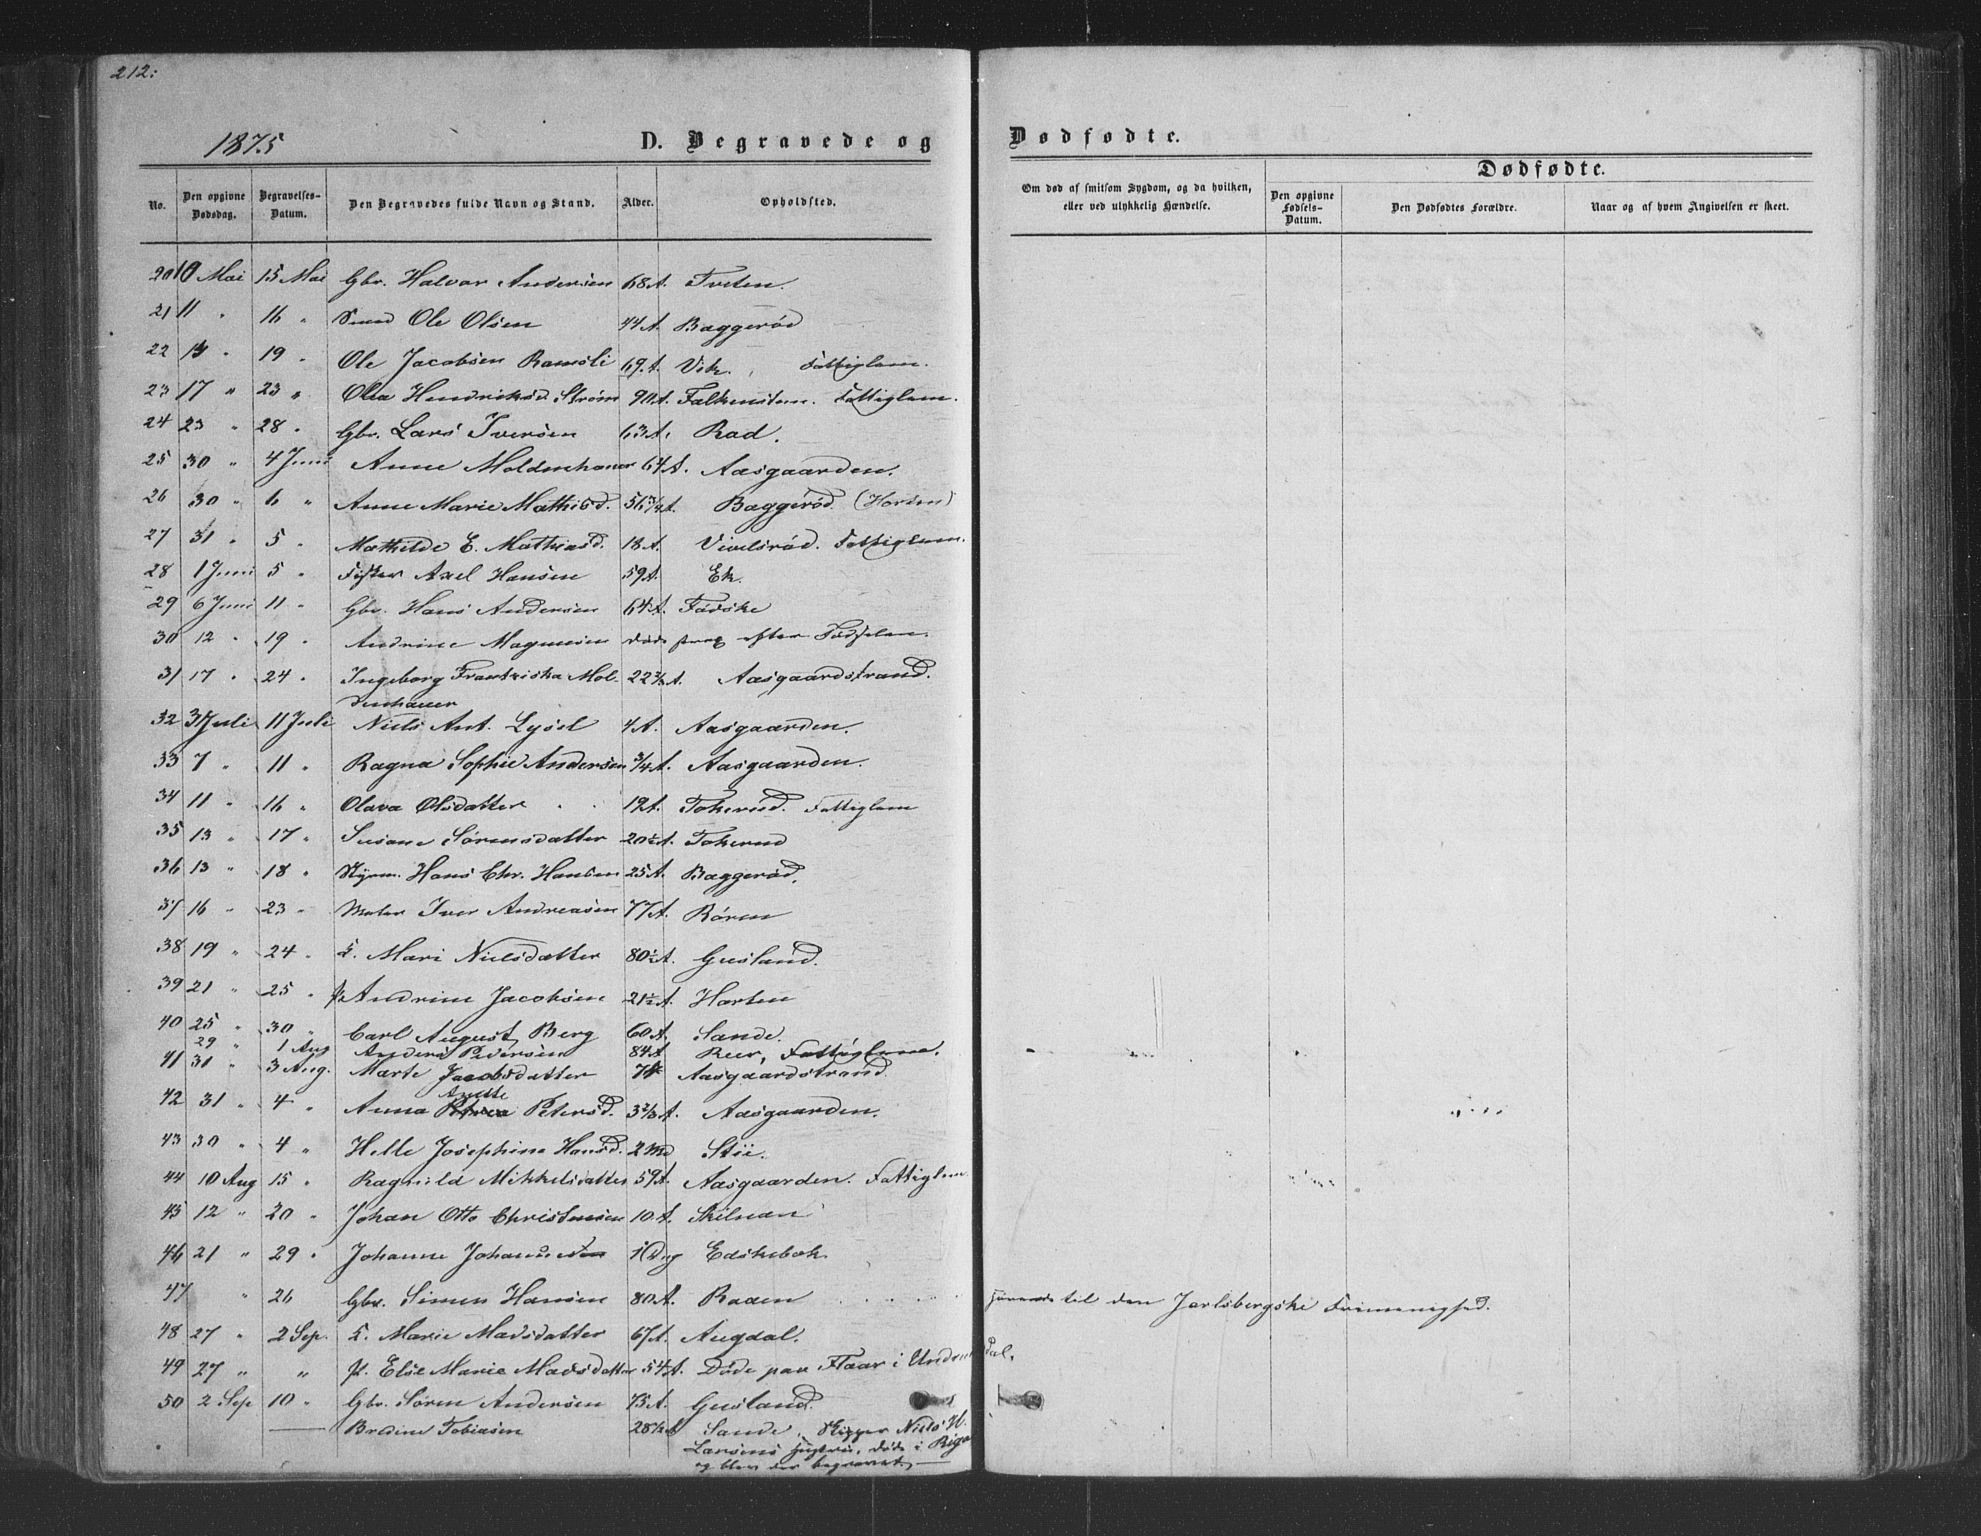 212:
1875
D. Begravede og Dødfødte.
No. Den opgivne Dødsdag. Begravelses-Datum. Den Begravedes fulde Navn og Stand. Alder. Opholdsted. Om død af smitsom Sygdom, og da hvilken, eller ved ulykkelig Hændelse. Dødfødte. Den opgivne Fødsels-Datum. Den Dødfødtes Forældre. Naar og af hvem Angivelsen er skeet.
20 10 Mai 15 Mai Gbr. Halvor Andersen 68 A. Tveten.
21 11 " 16 " Smed Ole Olsen 44 A. Baggerød
22 13 " 19 " Ole Jacobsen Ramsli 69 A. Vik. Fattiglem.
23 17 " 23 " Olea Hendriksd. Strøm 90 A. Falkensten. Fattiglem.
24 23 " 28 " Gbr. Lars Iversen 63 A. Rød.
25 30 " 4 Juni Anne Moldenhauer 64 A. Aasgaarden.
26 30 " 6 " Anne Marie Mathisd. 56 3/4 A. Baggerød (Horten)
27 31 " 5 " Mathilde E. Mathiasd. 18 A. Vivelsrød. Fattiglem.
28 1 Juni 5 " Fisker Axel Hansen 59 A. Ek.
29 6 Juni 11 " Gbr. Hans Andersen 64 A. Fadske
30 12 " 19 " Andrine Magnusen døde strax efter Fødselen.
31 17 " 24 " Ingeborg Frantziska Mol- 22 A. Aasgaardstrand.
denhauer
32 3 Juli 11 Juli Niels Ant. Lysel 4 A. Aasgaarden.
33 7 " 11 " Ragna Sophie Andersen 3/4 A. Aasgaarden.
34 11 " 16 " Olava Olsdatter 19 A. Tokerud. Fattiglem
35 13 " 17 " Susane Sørensdatter 20 1/2 A. Tokerud
36 13 " 18 " Styrm. Hans Chr. Hansen 25 A. Baggerød.
37 16 " 23 " Maler Iver Andreasen 77 A. Røren
38 19 " 24 " Mari Nielsdatter 80 1/2 A. Gusland.
39 21 " 25 " Andrine Jacobsen 21 1/2 A. Horten
40 25 " 30 " Carl August Berg 60 A. Sande.
29 " 1 Aug Anders Pedersen 84 A. Fattiglem.
41 31 " 3 Aug. Marte Jacobsdatter Aasgaardstrand
Anette
42 31 " 4 " Anna Petersd. 3 2/3 A. Aasgaarden.
43 30 " 4 " Helle Josephine Hansd. 2 Md Stii.
44 10 Aug 15 " Ragnild Mikkelsdatter 59 A. Aasgaarden. Fattiglem
45 12 " 20 " Johan Otto Christensen 10 A. Skilsøen
46 21 " 29 " Johanne 1 Dag Edskebæk.
47 " 26 Gbr. Simen Hansen 80 A. Raaen . . . . . hørende til den Jarlsbergske Frimenighed.
48 27 " 2 Sep. Marie Madsdatter 67 A. Augdal.
49 27 " " Elsie Marie Madsdatter 54 A. Døde paa Flaar i Undrumsdal.
50 2 Sep 10 " Gbr. Søren Andersen 75 A. Gusland.
Bredine Tobiasen 28 1/2 A Sande. Skipper Niels H.
Larsens Hustru, døde i Riga
og blev der begravet.